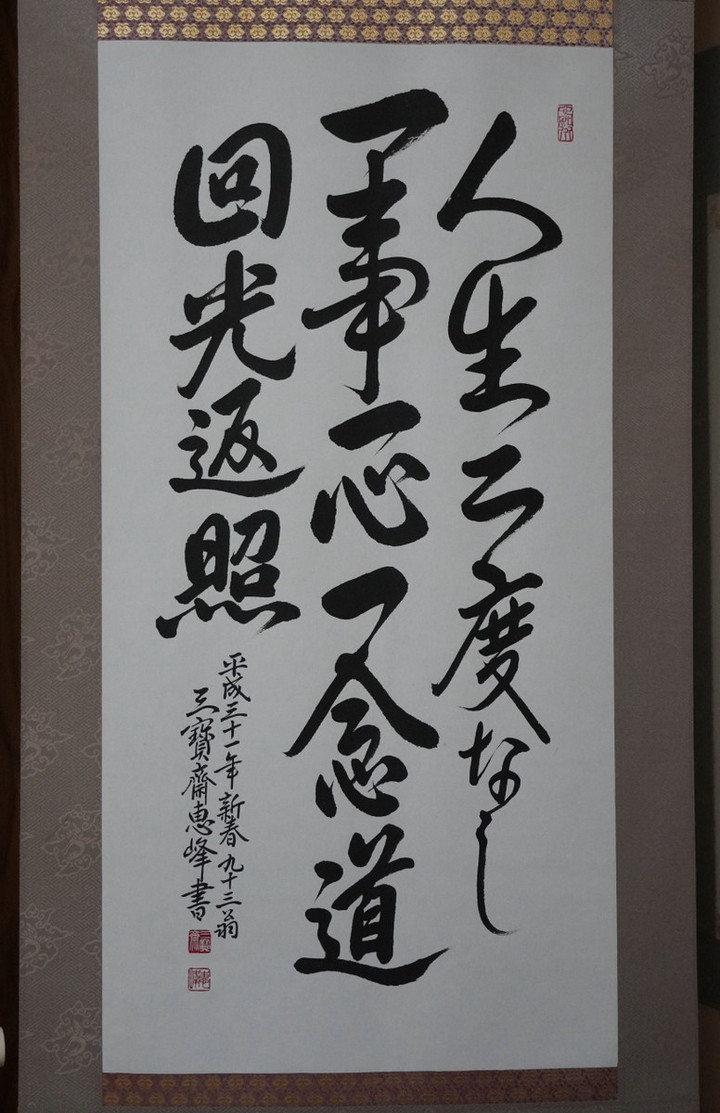 人生二度なし
一事一心一念道
回光返照
平成三十一年新春九十三翁
三寶齋恵峰書